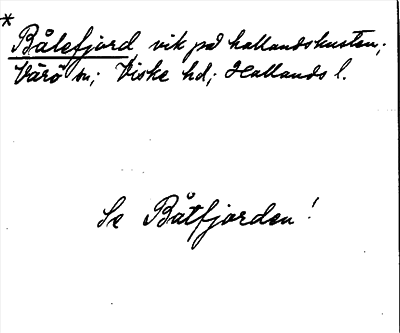 *
Bålefjord, vik på hallandskusten;
Värö sn; Viske hd; Hallands l.
Se Båtfjorden!